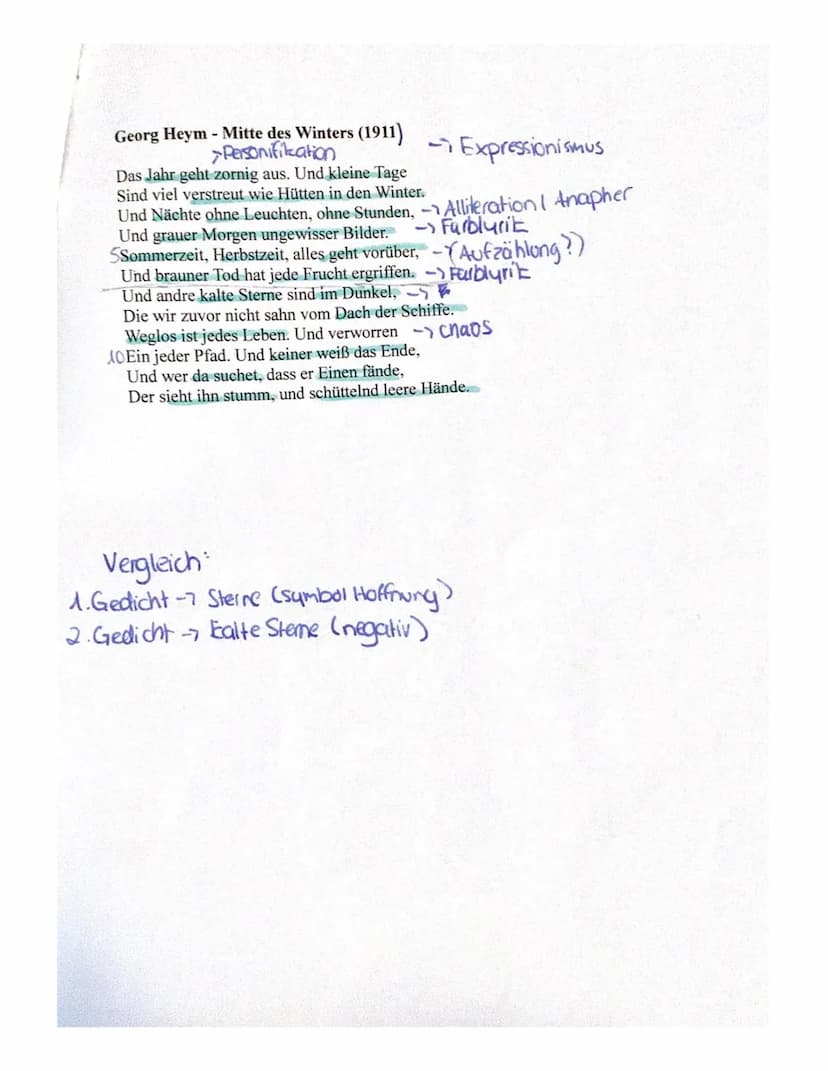 Georg Heym - Mitte des Winters (1911)
-> Expressionismus
>Personifikation
Das Jahr geht zornig aus. Und kleine Tage
Sind viel verstreut wie Hütten in den Winter.
Und Nächte ohne Leuchten, ohne Stunden, -> Alliteration / Anapher
Und grauer Morgen ungewisser Bilder. -> Farblyrik
5 Sommerzeit, Herbstzeit, alles geht vorüber, -> (Aufzählung?)
Und brauner Tod hat jede Frucht ergriffen. -> Farblyrik
Und andre kalte Sterne sind im Dunkel, ->
Die wir zuvor nicht sahn vom Dach der Schiffe.
Weglos ist jedes Leben. Und verworren -> chaos
10 Ein jeder Pfad. Und keiner weiß das Ende,
Und wer da suchet, dass er Einen fände,
Der sieht ihn stumm, und schüttelnd leere Hände.
Vergleich:
1. Gedicht -> Sterne (symbol Hoffnung)
2. Gedicht -> kalte Sterne (negativ)